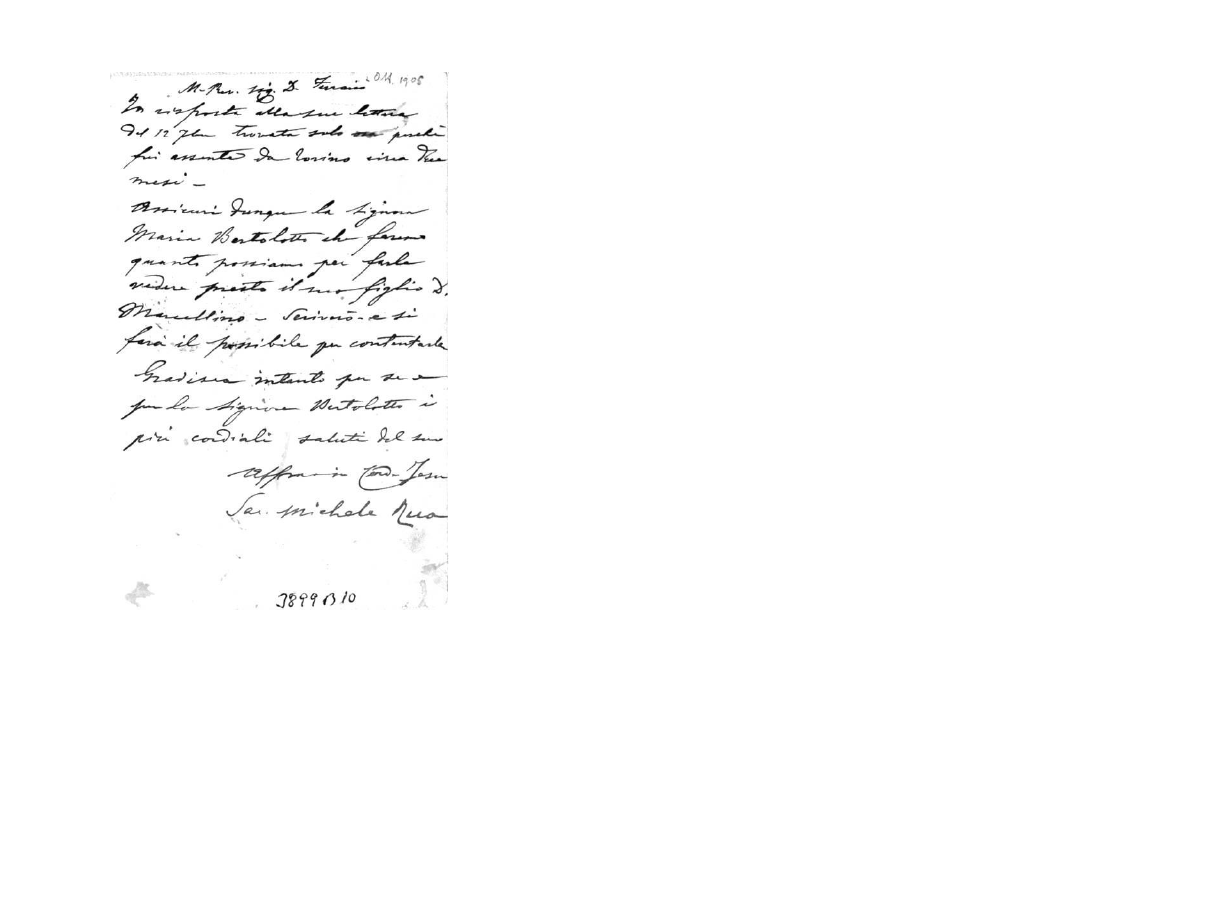 Ott. 1908
M. Rev. Sig. D.
In risposta alla sua lettera
del 12 7bre trovata solo perchè
fui assente da Torino circa due
mesi –
Assicuri dunque la Signora
Maria Bertolotto che faremo
quanto possiamo per farle
vedere presto il suo figlio D.
Marcellino – Scriverò e si
farà il possibile per contentarla
Gradisca intanto per se e
per la Signora Bertolotto i
più cordiali saluti del suo
Affmo in Cord. Jesu
Sac. Michele Rua
3899 B 10